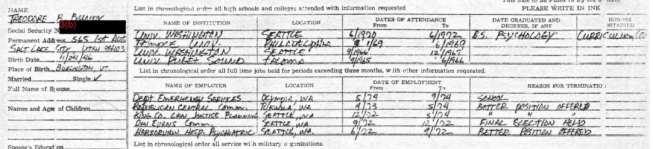 NAME
THEODORE R. BUNDY
Social Security
Permanent Address 565 1st AVE
SALT LAKE CITY, UTAH 84103
Birth Date 11/24/46
Place of Birth BURLINGTON, VT.
Married Single ✓
Full Name of Spouse
Names and Ages of Children
Spouse's Education
PLEASE WRITE IN INK
List in chronological order all high schools and colleges attended with information requested.
NAME OF INSTITUTION LOCATION DATES OF ATTENDANCE From To DATE GRADUATED AND DEGREES, IF ANY HONORS ATTAINED
UNIV. WASHINGTON SEATTLE 6/1970 6/1972 B.S. PSYCHOLOGY
TEMPLE UNIV. PHILADELPHIA 1/69 6/1969
UNIV. WASHINGTON SEATTLE 9/1966 12/1967
UNIV. PUGET SOUND TACOMA 9/1965 6/1966
List in chronological order all full time jobs held for periods exceeding three months, with other information requested.
NAME OF EMPLOYER LOCATION DATES OF EMPLOYMENT From To REASON FOR TERMINATION
DEPT EMERGENCY SERVICES OLYMPIA, WA 5/74 9/74 SCHOOL
REPUBLICAN CENTRAL COMM. 9/73 5/74 BETTER POSITION OFFERED
KING CO. LAW JUSTICE PLANNING SEATTLE, WA 12/72 5/74 " "
DAN EVANS COMM. SEATTLE, WA 9/72 12/72 FINAL ELECTION HELD
HARBORVIEW HOSP. PSYCHIATRIC SEATTLE, WA. 6/72 9/72 BETTER POSITION OFFERED
List in chronological order all service with military organizations.